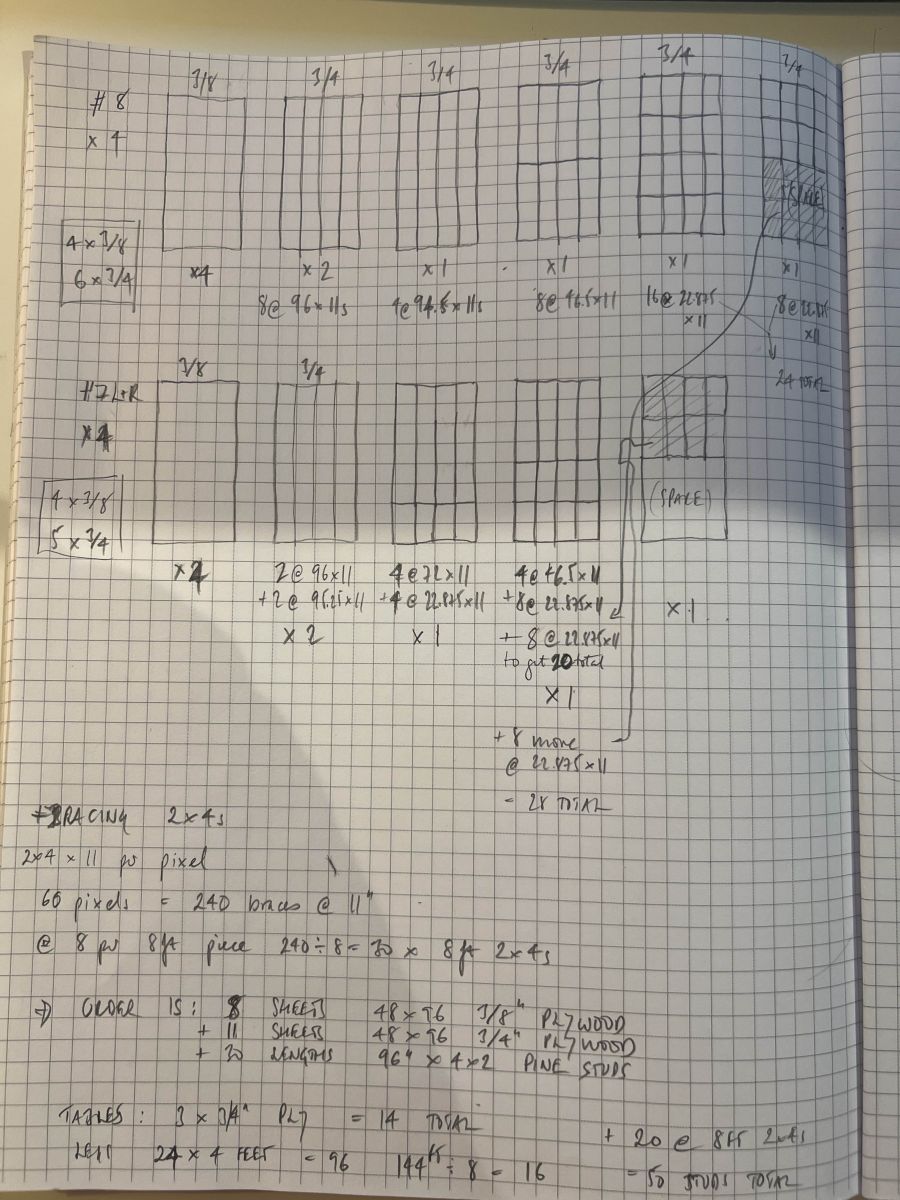 3/8 3/4 3/4 3/4 3/4 3/4
#8
x 4
(SPARE)
4 x 3/8
6 x 3/4
x4 x 2 x 1 x 1 x 1 x 1
8 @ 96 x 11s 4 @ 94.5 x 11s 8 @ 46.5 x 11 16 @ 22.875 x 11 8 @ 22.875 x 11
24 TOTAL
3/8 3/4
#7 L+R
4 x 3/8
5 x 3/4
(SPARE)
2 @ 96 x 11 4 @ 72 x 11 4 @ 46.5 x 11
+ 2 @ 95.25 x 11 + 4 @ 22.875 x 11 + 8 @ 22.875 x 11
x 1
x 2 x 1 + 8 @ 22.875 x 11
to get 20 total
x 1
+ 8 more
@ 22.875 x 11
= 28 TOTAL
BRACING 2 x 4s
2x4 x 11 per pixel
60 pixels = 240 braces @ 11"
@ 8 per 8ft piece 240 ÷ 8 = 30 x 8ft 2x4s
⇒ ORDER IS: 8 SHEETS 48 x 96 3/8" PLYWOOD
+ 11 SHEETS 48 x 96 3/4" PLYWOOD
+ 30 LENGTHS 96" x 4 x 2 PINE STUDS
TABLES: 3 x 3/4" PLY = 14 TOTAL
24 x 4 FEET = 96 144ft ÷ 8 = 16
+ 20 @ 8FT 2x4s
= 50 STUDS TOTAL